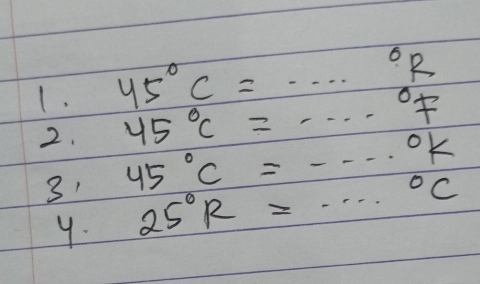 1. 45°C = .... °R
2. 45°C = .... °F
3. 45°C = .... °K
4. 25°R = .... °C